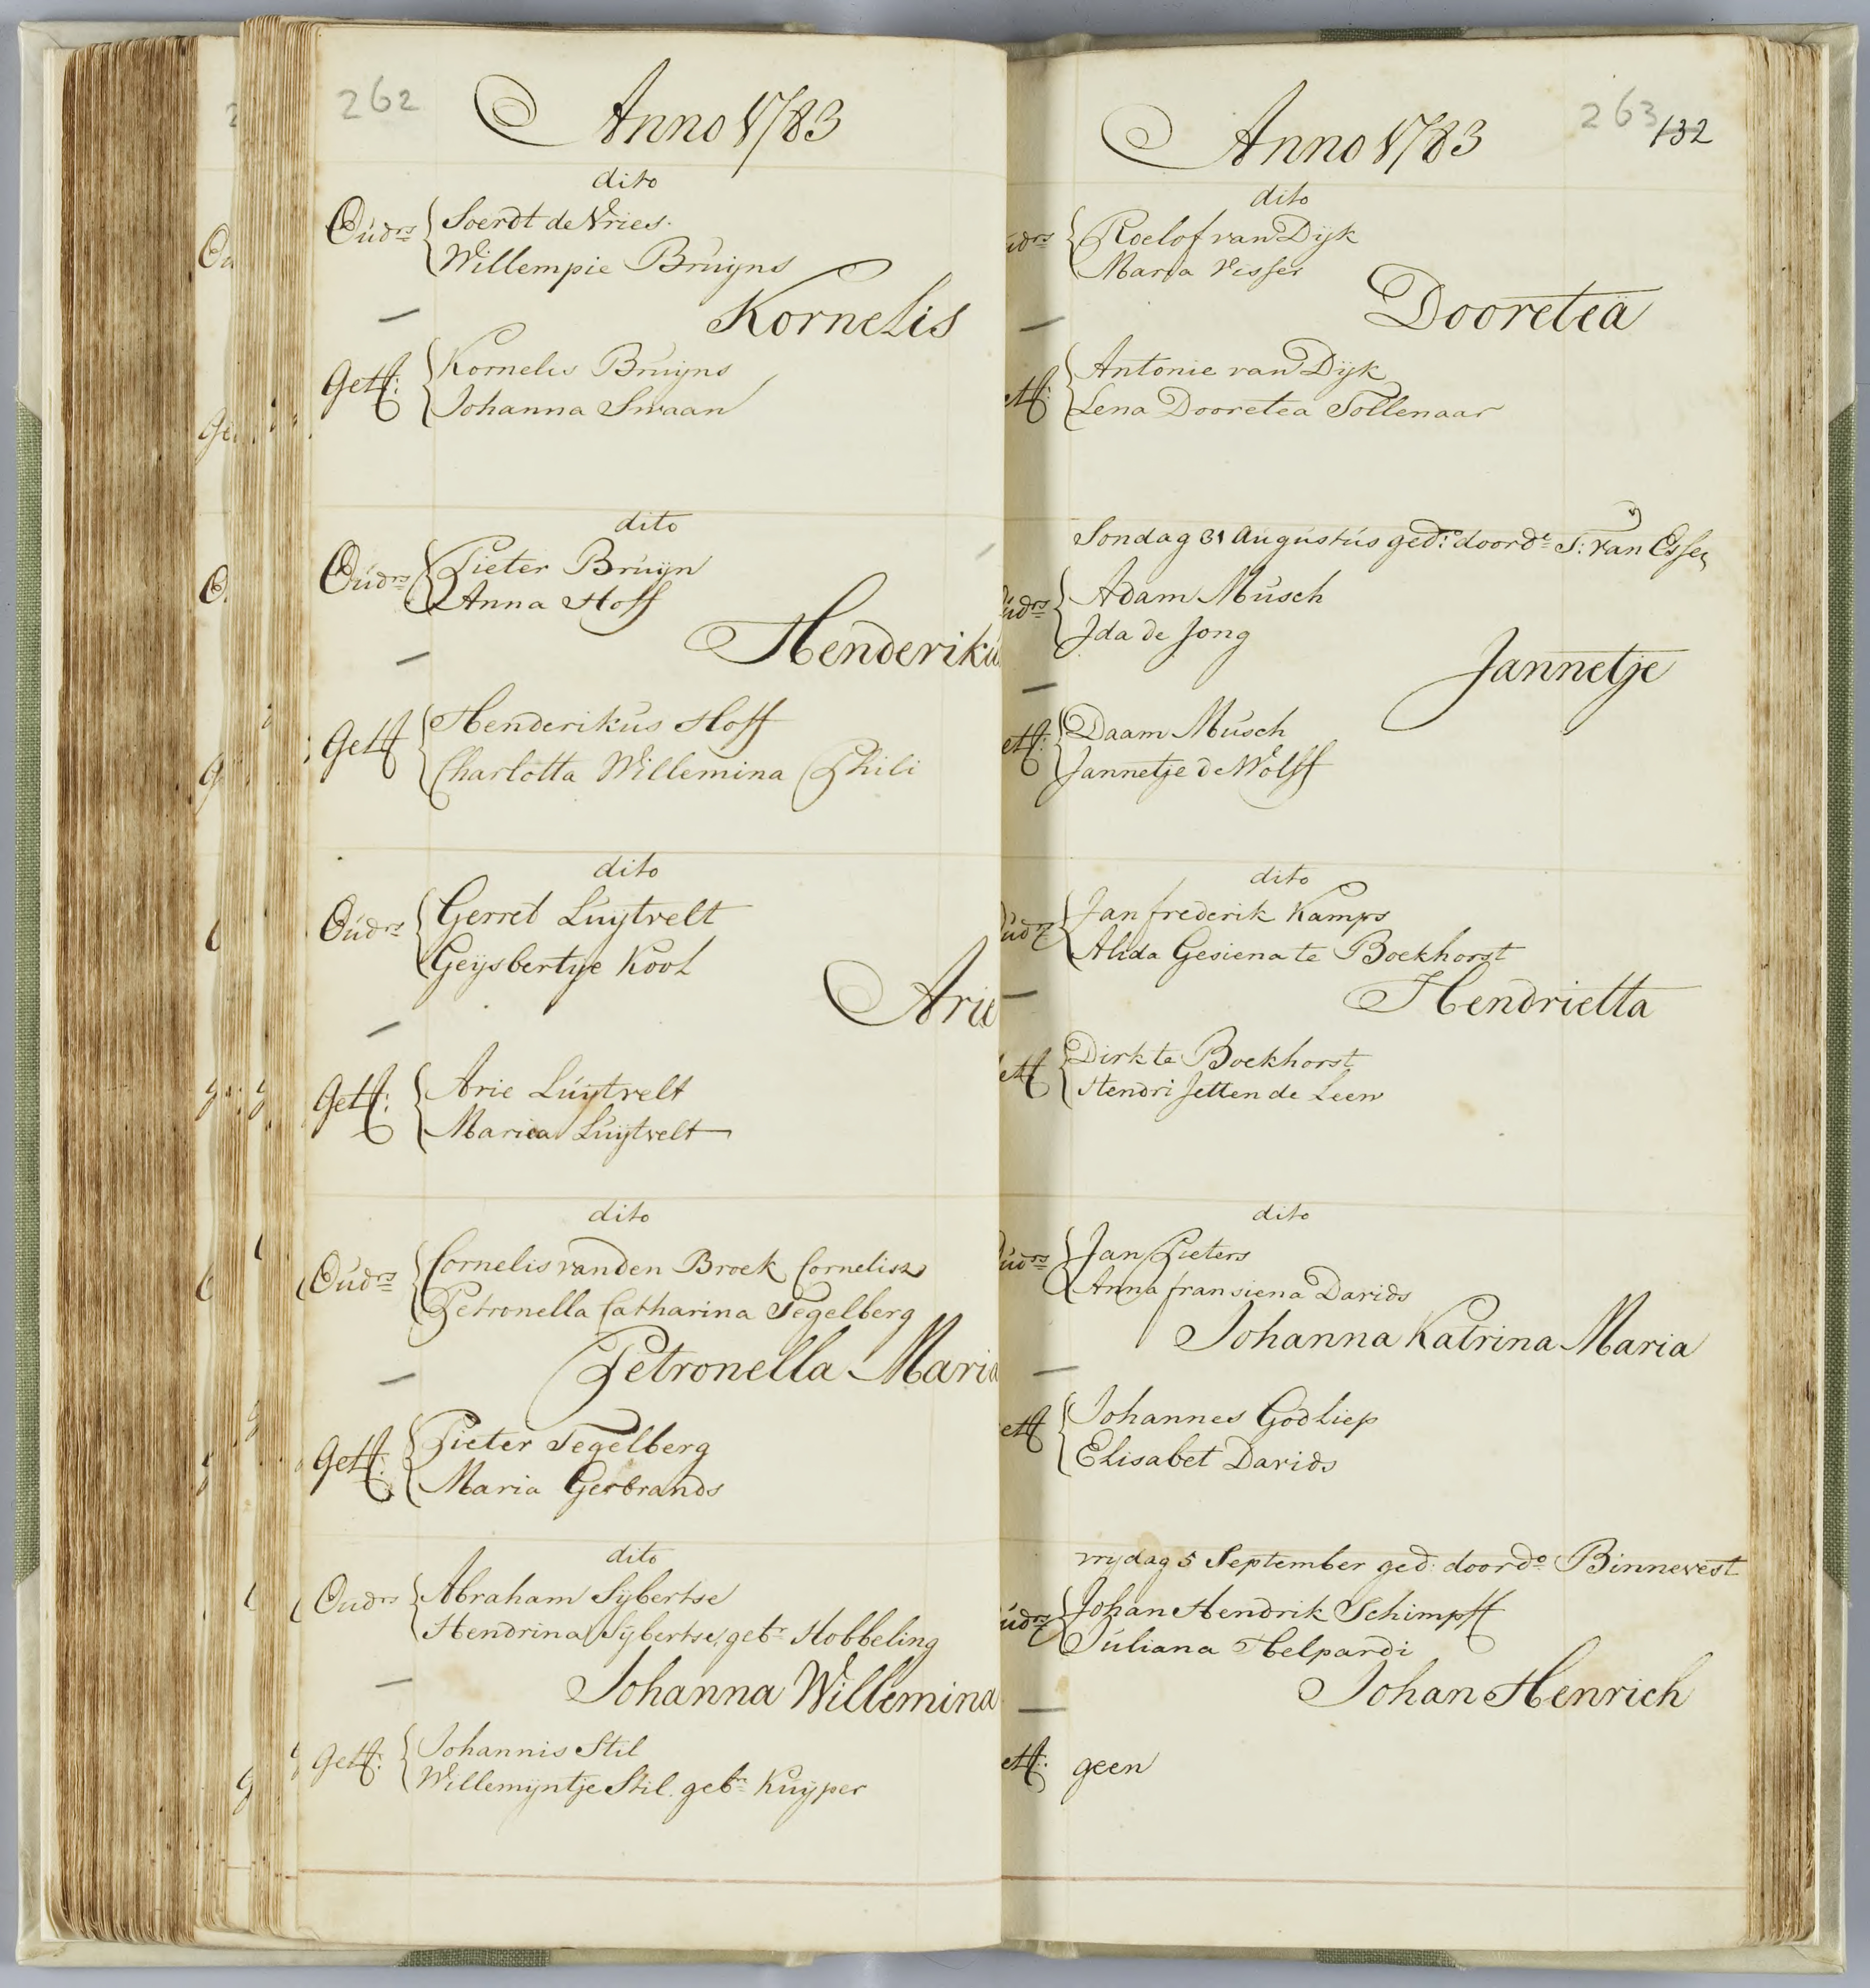 262
Anno 1783
dito
Oudrs Soerdt de Vries.
Willempie Bruijns
Kornelis
Gett: Kornelis Bruijns
Johanna Swaan
dito
Oudrs Pieter Bruijn
Anna Hoff
Henderiku
Gett Henderikus Hoff
Charlotta Willemina Phili
dito
Oudrs Gerret Luijtvelt
Geijsbertije Kool
Arie
Gett: Arie Luijtvelt
Maria Luijtvelt
dito
Oudrs Cornelis van den Broek Cornelisz
Petronella Catharina Tegelberg
Petronella Maria
Gett: Pieter Tegelberg
Maria Gerbrands
dito
Oudrs Abraham Sijbertse
Hendrina Sijbertse, gebr Hobbeling
Johanna Willemina
Gett: Johannis Stil
Willemijntje Stil. gebr Kuijper
263 132
Anno 1783
dito
udrs Roelof van Dijk
Maria Visser
Dooretea
ett: Antonie van Dijk
Lena Dooretea Tollenaar
Sondag 31 Augustus ged: door de S: van Essen
udrs Adam Musch
Ida de Jong
Jannetje
ett: Daam Musch
Jannetje de Wolff
dito
udrs Jan frederik Kamps
Alida Gesiena te Boekhorst
Hendrietta
ett Dirk te Boekhorst
Hendri Jetten de Leen
dito
udrs Jan Pieters
Anna fransiena Davids
Johanna Katrina Maria
ett Johannes Godliep
Elisabet Davids
vrijdag 5 September ged: door do Binnevest
udrs Johan Hendrik Schimpff
Juliana Helpardi
Johan Henrich
ett: geen